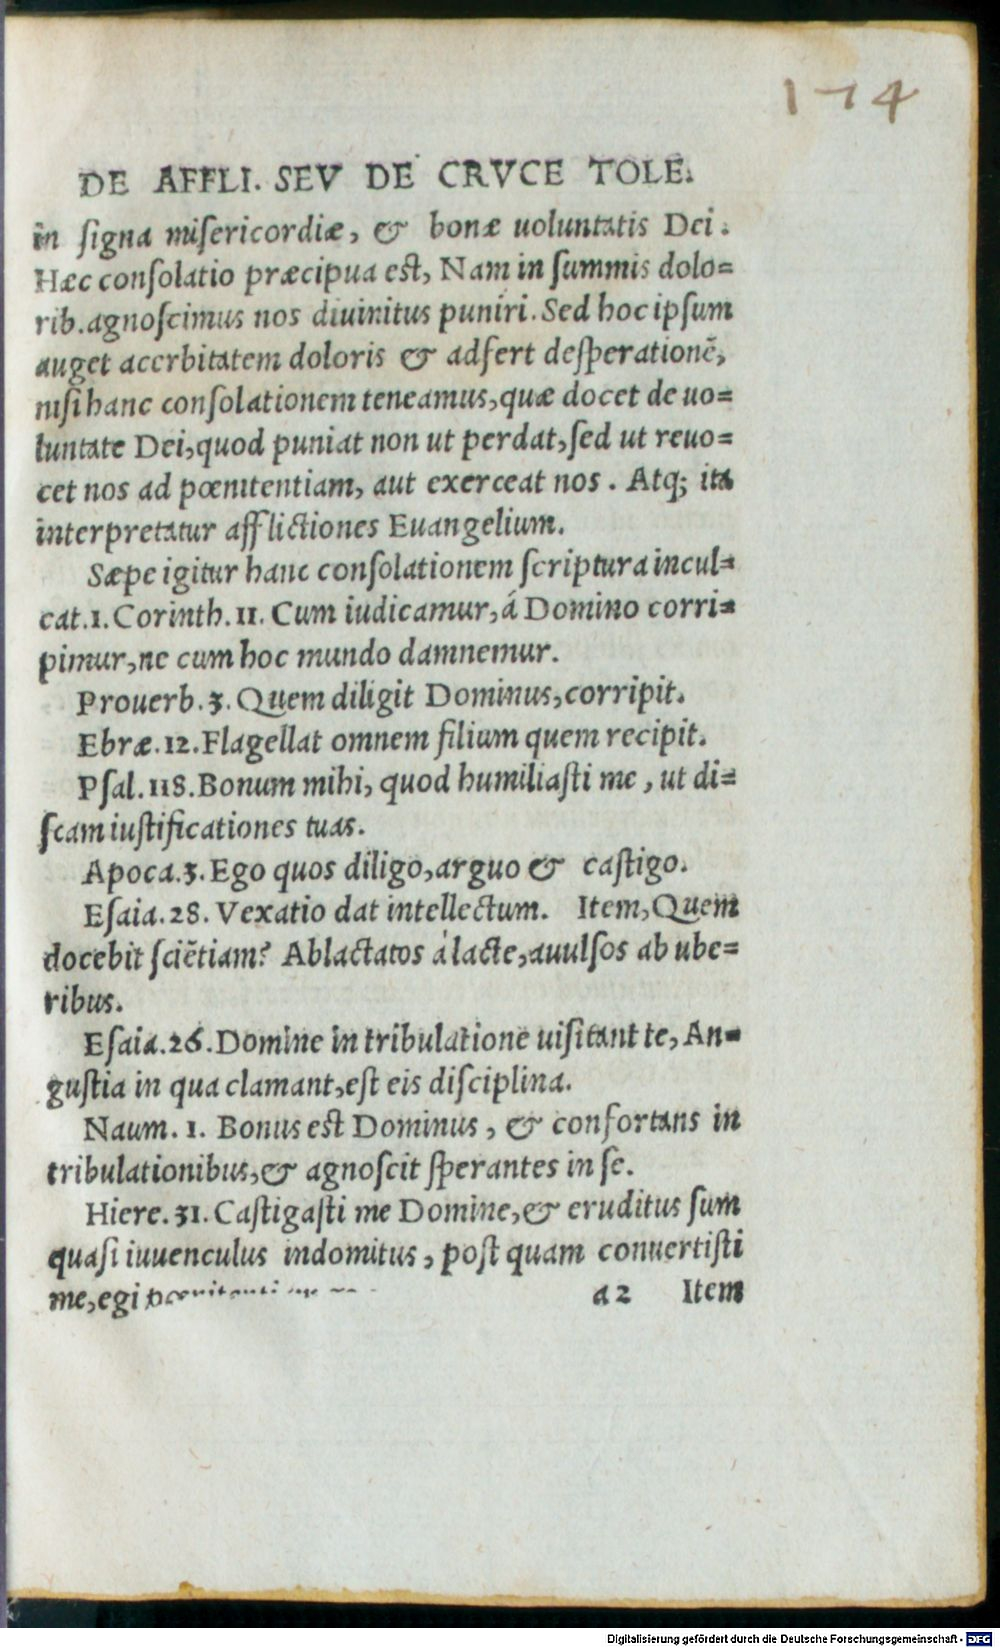 174
DE AFFLI. SEV DE CRVCE TOLE.
in signa misericordiæ, & bonæ uoluntatis Dei.
Hæc consolatio præcipua est, Nam in summis dolo=
rib. agnoscimus nos diuinitus puniri. Sed hoc ipsum
auget acerbitatem doloris & adfert desperationẽ,
nisi hanc consolationem teneamus, quæ docet de uo=
luntate Dei, quod puniat non ut perdat, sed ut reuo=
cet nos ad pœnitentiam, aut exerceat nos. Atq; ita
interpretatur afflictiones Euangelium.
Sæpe igitur hanc consolationem scriptura incul=
cat. 1. Corinth. 11. Cum iudicamur, á Domino corri=
pimur, ne cum hoc mundo damnemur.
Prouerb. 3. Quem diligit Dominus, corripit.
Ebræ. 12. Flagellat omnem filium quem recipit.
Psal. 118. Bonum mihi, quod humiliasti me, ut di=
scam iustificationes tuas.
Apoca. 3. Ego quos diligo, arguo & castigo.
Esaia. 28. Vexatio dat intellectum. Item, Quem
docebit sciẽtiam? Ablactatos á lacte, auulsos ab ube=
ribus.
Esaia. 26. Domine in tribulatione uisitant te, An=
gustia in qua clamant, est eis disciplina.
Naum. 1. Bonus est Dominus, & confortans in
tribulationibus, & agnoscit sperantes in se.
Hiere. 31. Castigasti me Domine, & eruditus sum
quasi iuuenculus indomitus, post quam conuertisti
me, egi a2 Item
Digitalisierung gefördert durch die Deutsche Forschungsgemeinschaft - DFG